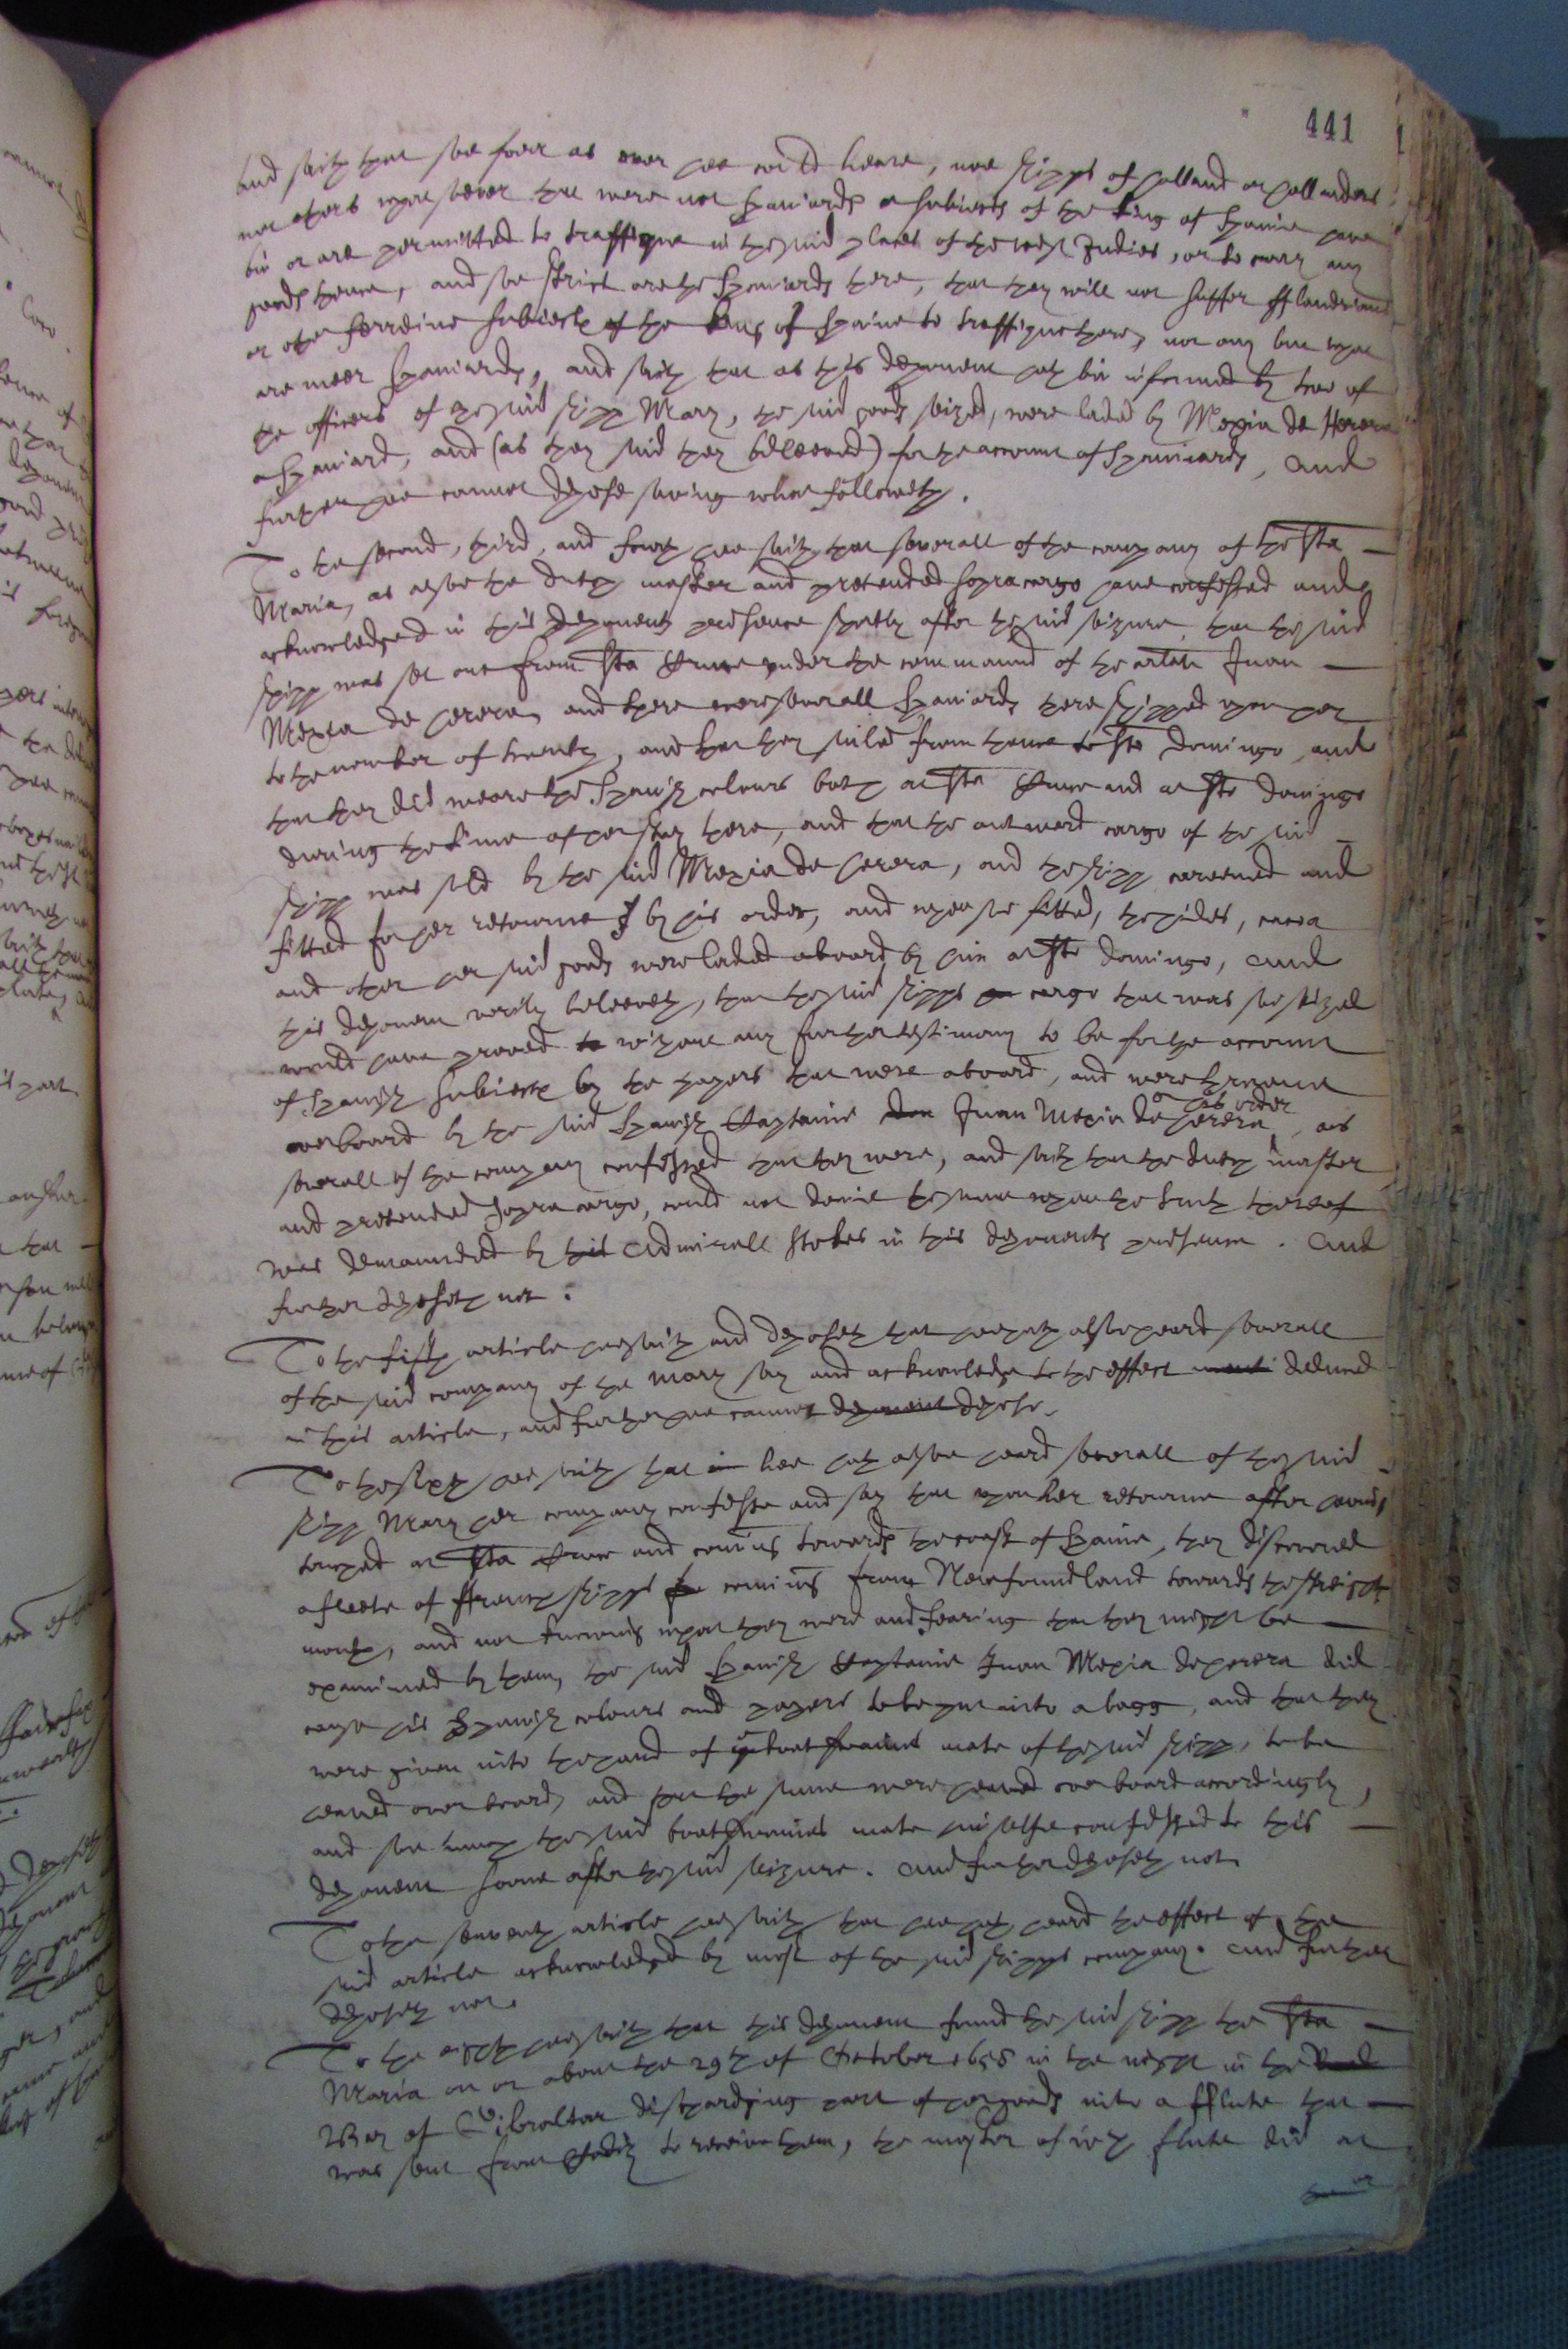 441
and saith that soe farr as ever hee could heare, noe shipps of holland or hollanders
nor others whatsoever that were not Spaniards or subiects of the king of Spaine have
bin or are permitted to traffique in the said places of the west Indies, or to carry any
goods thence, and soe strict are the Spaniards there, that they will not suffer fflandrians
or other forreine subiects of the king of Spaine to traffique there, nor any but what
are meer Spaniards, and saith that as this deponent hath bin informed by two of
the officers of the said shipp Mary, the said goods seized, were laded by Mexia de Herera
a Spaniard, and (as they said they beleeved) for the account of Spaniards, And
further hee cannot depose saving what followeth.
To the second, third, and fourth hee saith that severall of the company of the Sta
Maria, as alsoe the dutch master and pretended sopracargo have confessed and
acknowledged in this deponents presence shortly after the said seizure, that the said
shipp was set out from Sta Cruce under the command of the arlate Juan
Mexia de herera, and there were severall Spaniards there shipped upon her
to the number of twenty, and that they sailed from thence to Sto Domingo, and
that they did weare the Spanish colours both at Sta Cruce and at Sto Domingo
during the time of her stay there, and that the outward cargo of the said
shipp was sold by the said Mexia de herera, and the shipp careened and
fitted for her retourne by his order, and when soe fitted, the hides, cacoa
and other her said goods were laded aboard by him at Sto Domingo, And
this deponent verily beleeveth, that the said shipps cargo that was soe seized
would have proved without any further testimony to be for the account
of Spanish subiects by the papers that were aboard, and were throwne
overboard by the said Spanish Captaine don Juan Mexia de herera
or his order
, as
severall of the company confessed that they were, and saith that the dutch master
and pretended sopra cargo, could not denie the same when the truth thereof
was demaunded by his Admirall Stokes in this deponents presence. And
further deposeth not.
To the fifth article hee saith and deposeth that hee hath alsoe heard severall
of the said company of the Mary say and acknowledge to the effect deduced
in this article, and further hee cannot deponent depose.
To the sixth hee saith that in hee hath alsoe heard severall of the said
shipp Mary her company confesse and say that upon her retourne after having
touched at Sta Cruce and coming towards the coast of Spaine, they discovered
a fleete of ffrench shipps coming from Newfoundland towards the streights
mouth, and not knowing what they were and fearing that they might be
examined by them, the said Spanish Captaine Juan Mexia de herera did
cause his Spanish colours and papers to be put into a bagg, and that they
were given into the hand of the boatswaines mate of the said shipp, to be
heaved over board, and that the same were heaved overboard accordingly,
and soe much the said boatswaines mate himselfe confessed to this
deponent soone after the said seizure. And further deposeth not.
To the seaventh article hee saith that hee hath heard the effect of the
said article acknowledged by most of the said shipps company. And further
deposeth not.
To the eighth hee saith that this deponent found the said shipp the Sta
Maria on or about the 29th of October 1656 in the night in the
Bay of Gibraltar discharging part of her goods into a fflute that
was sent from Cadiz to receive them, the master of which flute did at